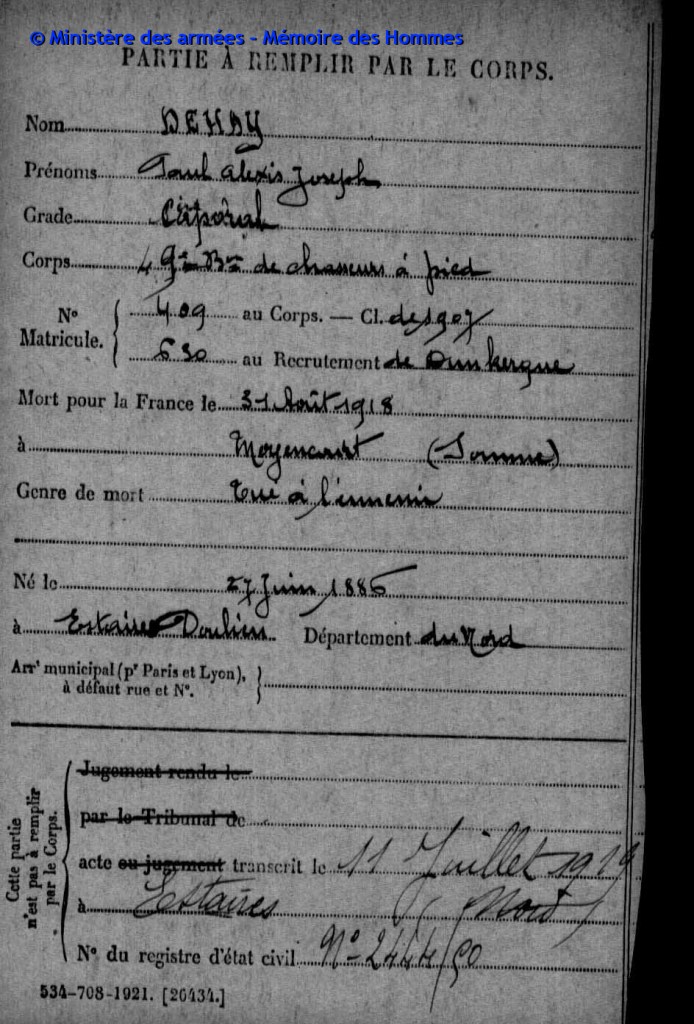 © Ministère des armées - Mémoire des Hommes
PARTIE À REMPLIR PAR LE CORPS.
Nom DEHAY
Prénoms Paul Alexis Joseph
Grade Caporal
Corps 49e Bon de chasseurs à pied
N° Matricule. 409 au Corps. — Cl. de 1907
630 au Recrutement de Dunkerque
Mort pour la France le 31 Août 1918
à Moyencourt (Somme)
Genre de mort Tué à l'ennemi
Né le 27 Juin 1886
à Estaires Doulieu Département du Nord
Arrt municipal (pr Paris et Lyon),
à défaut rue et N°.
Cette partie
n'est pas à remplir
par le Corps.
Jugement rendu le
par le Tribunal de
acte ou jugement transcrit le 11 Juillet 1919
à Estaires (Nord)
N° du registre d'état civil N° 2444/50
534-708-1921. [26434.]